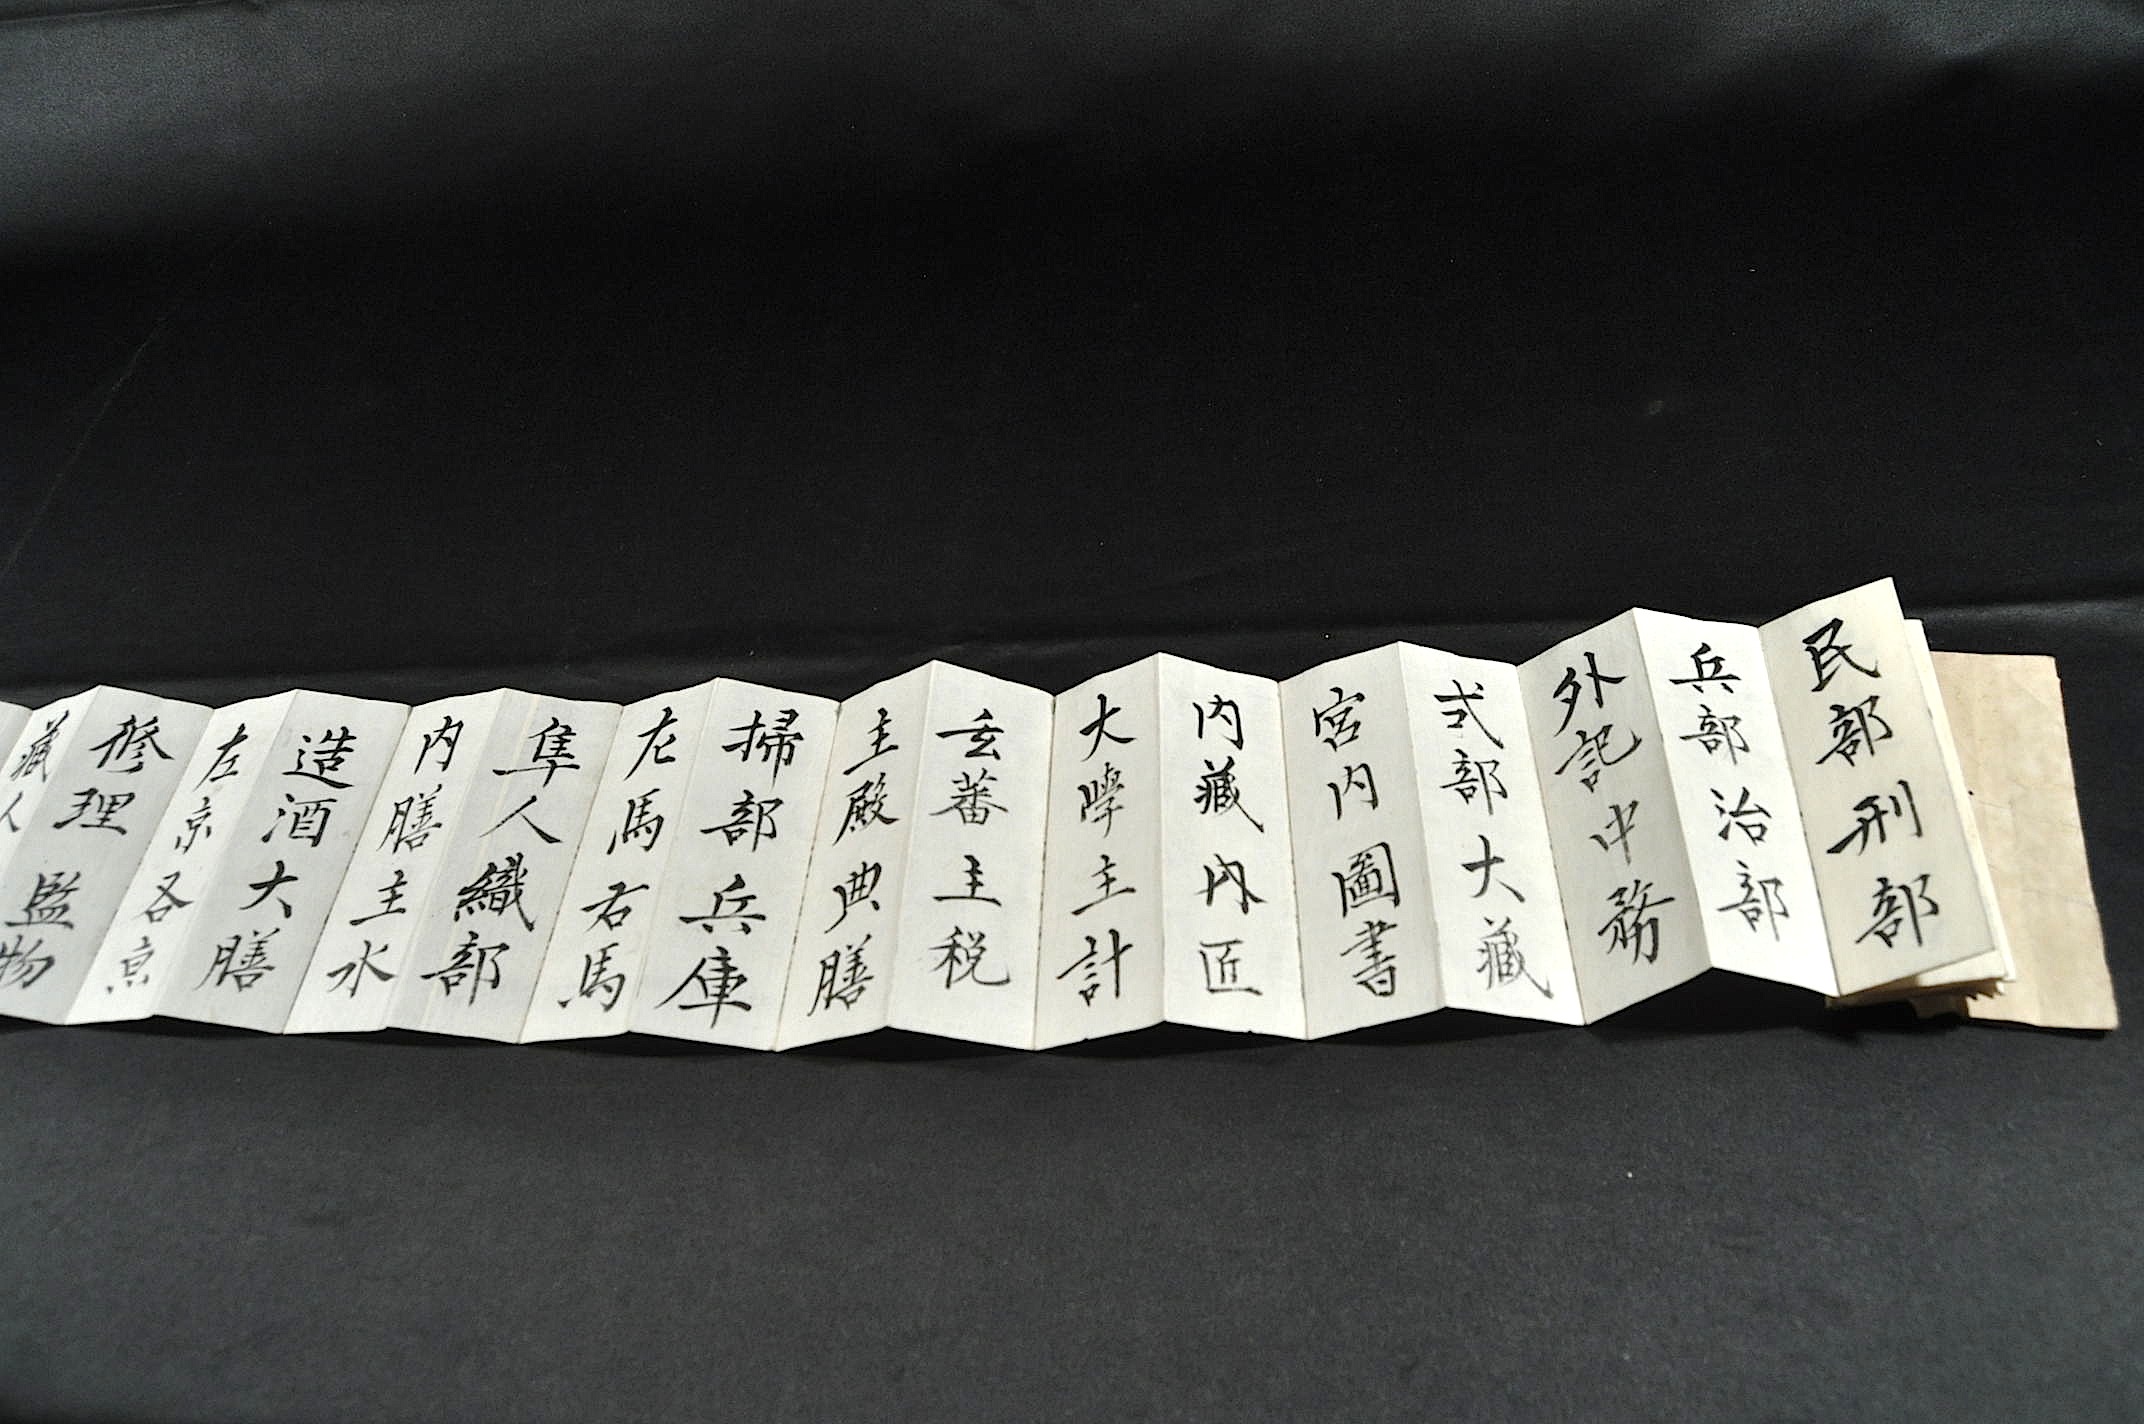 民部刑部
兵部治部
外記中務
式部大藏
宮内圖書
内藏内匠
大學主計
玄蕃主税
主殿典膳
掃部兵庫
左馬右馬
隼人織部
内膳主水
造酒大膳
左京右京
修理監物
藏人